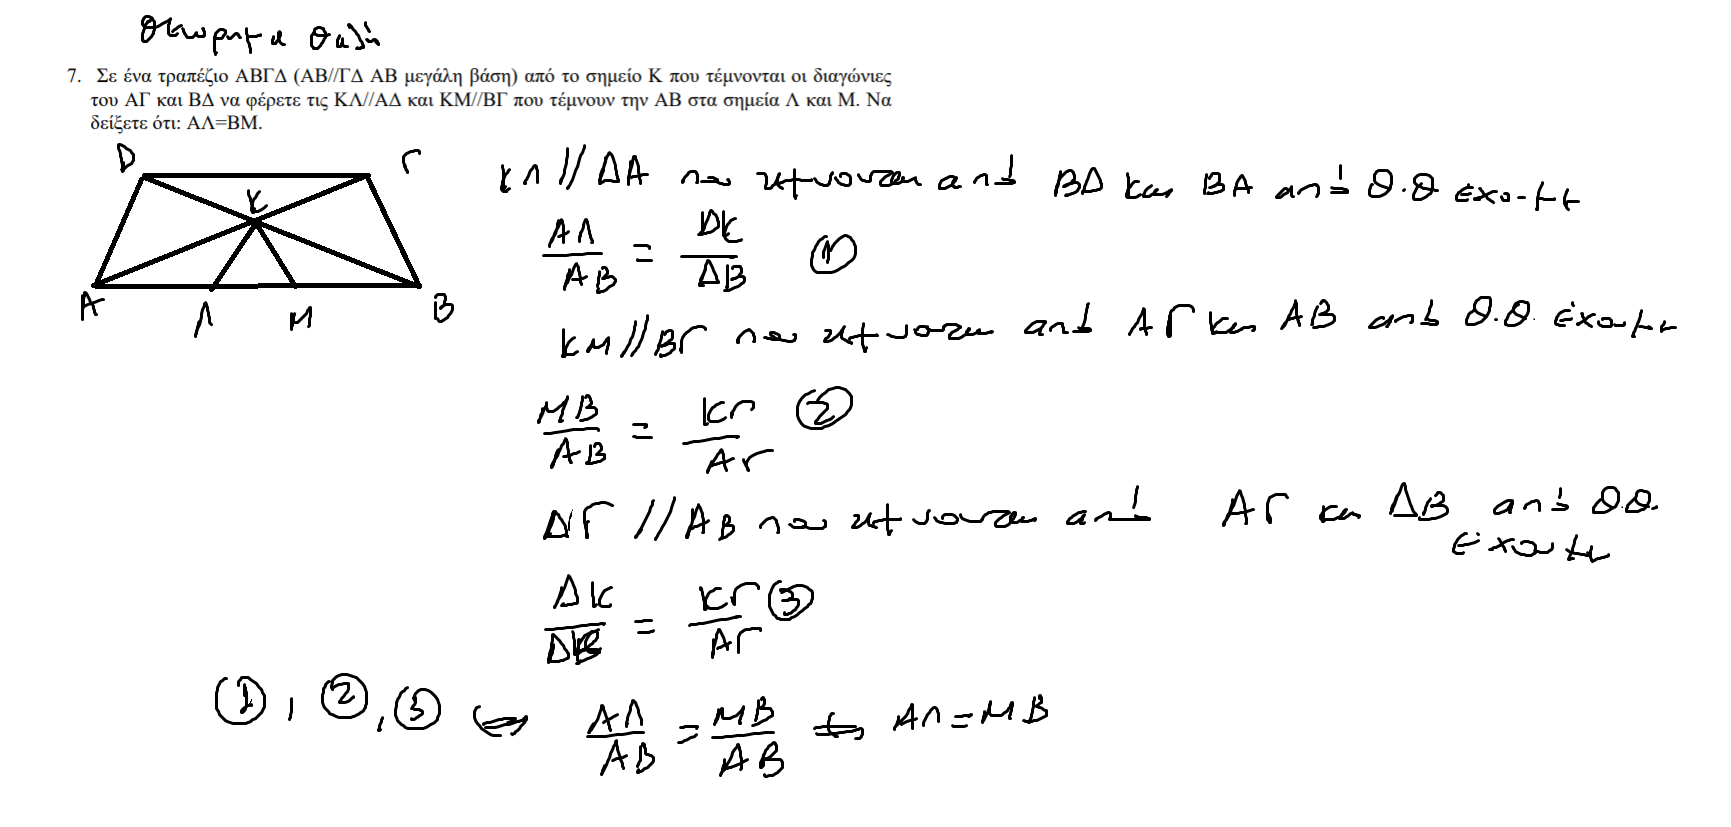 Θεωρημα Θαλή
7. Σε ένα τραπέζιο ΑΒΓΔ (ΑΒ//ΓΔ ΑΒ μεγάλη βάση) από το σημείο Κ που τέμνονται οι διαγώνιες
του ΑΓ και ΒΔ να φέρετε τις ΚΛ//ΑΔ και ΚΜ//ΒΓ που τέμνουν την ΑΒ στα σημεία Λ και Μ. Να
δείξετε ότι: ΑΛ=ΒΜ.
D Γ
K
A Λ M B
ΚΛ // ΔΑ που τέμνονται από ΒΔ και ΒΑ από Θ.Θ έχουμε
ΑΛ/ΑΒ = ΔΚ/ΔΒ ①
ΚΜ//ΒΓ που τέμνονται από ΑΓ και ΑΒ από Θ.Θ. έχουμε
ΜΒ/ΑΒ = ΚΓ/ΑΓ ②
ΔΓ //ΑΒ που τέμνονται από ΑΓ και ΔΒ από Θ.Θ.
έχουμε
ΔΚ/ΔΒ = ΚΓ/ΑΓ ③
①, ②, ③ ⇔ ΑΛ/ΑΒ = ΜΒ/ΑΒ ⇔ ΑΛ=ΜΒ